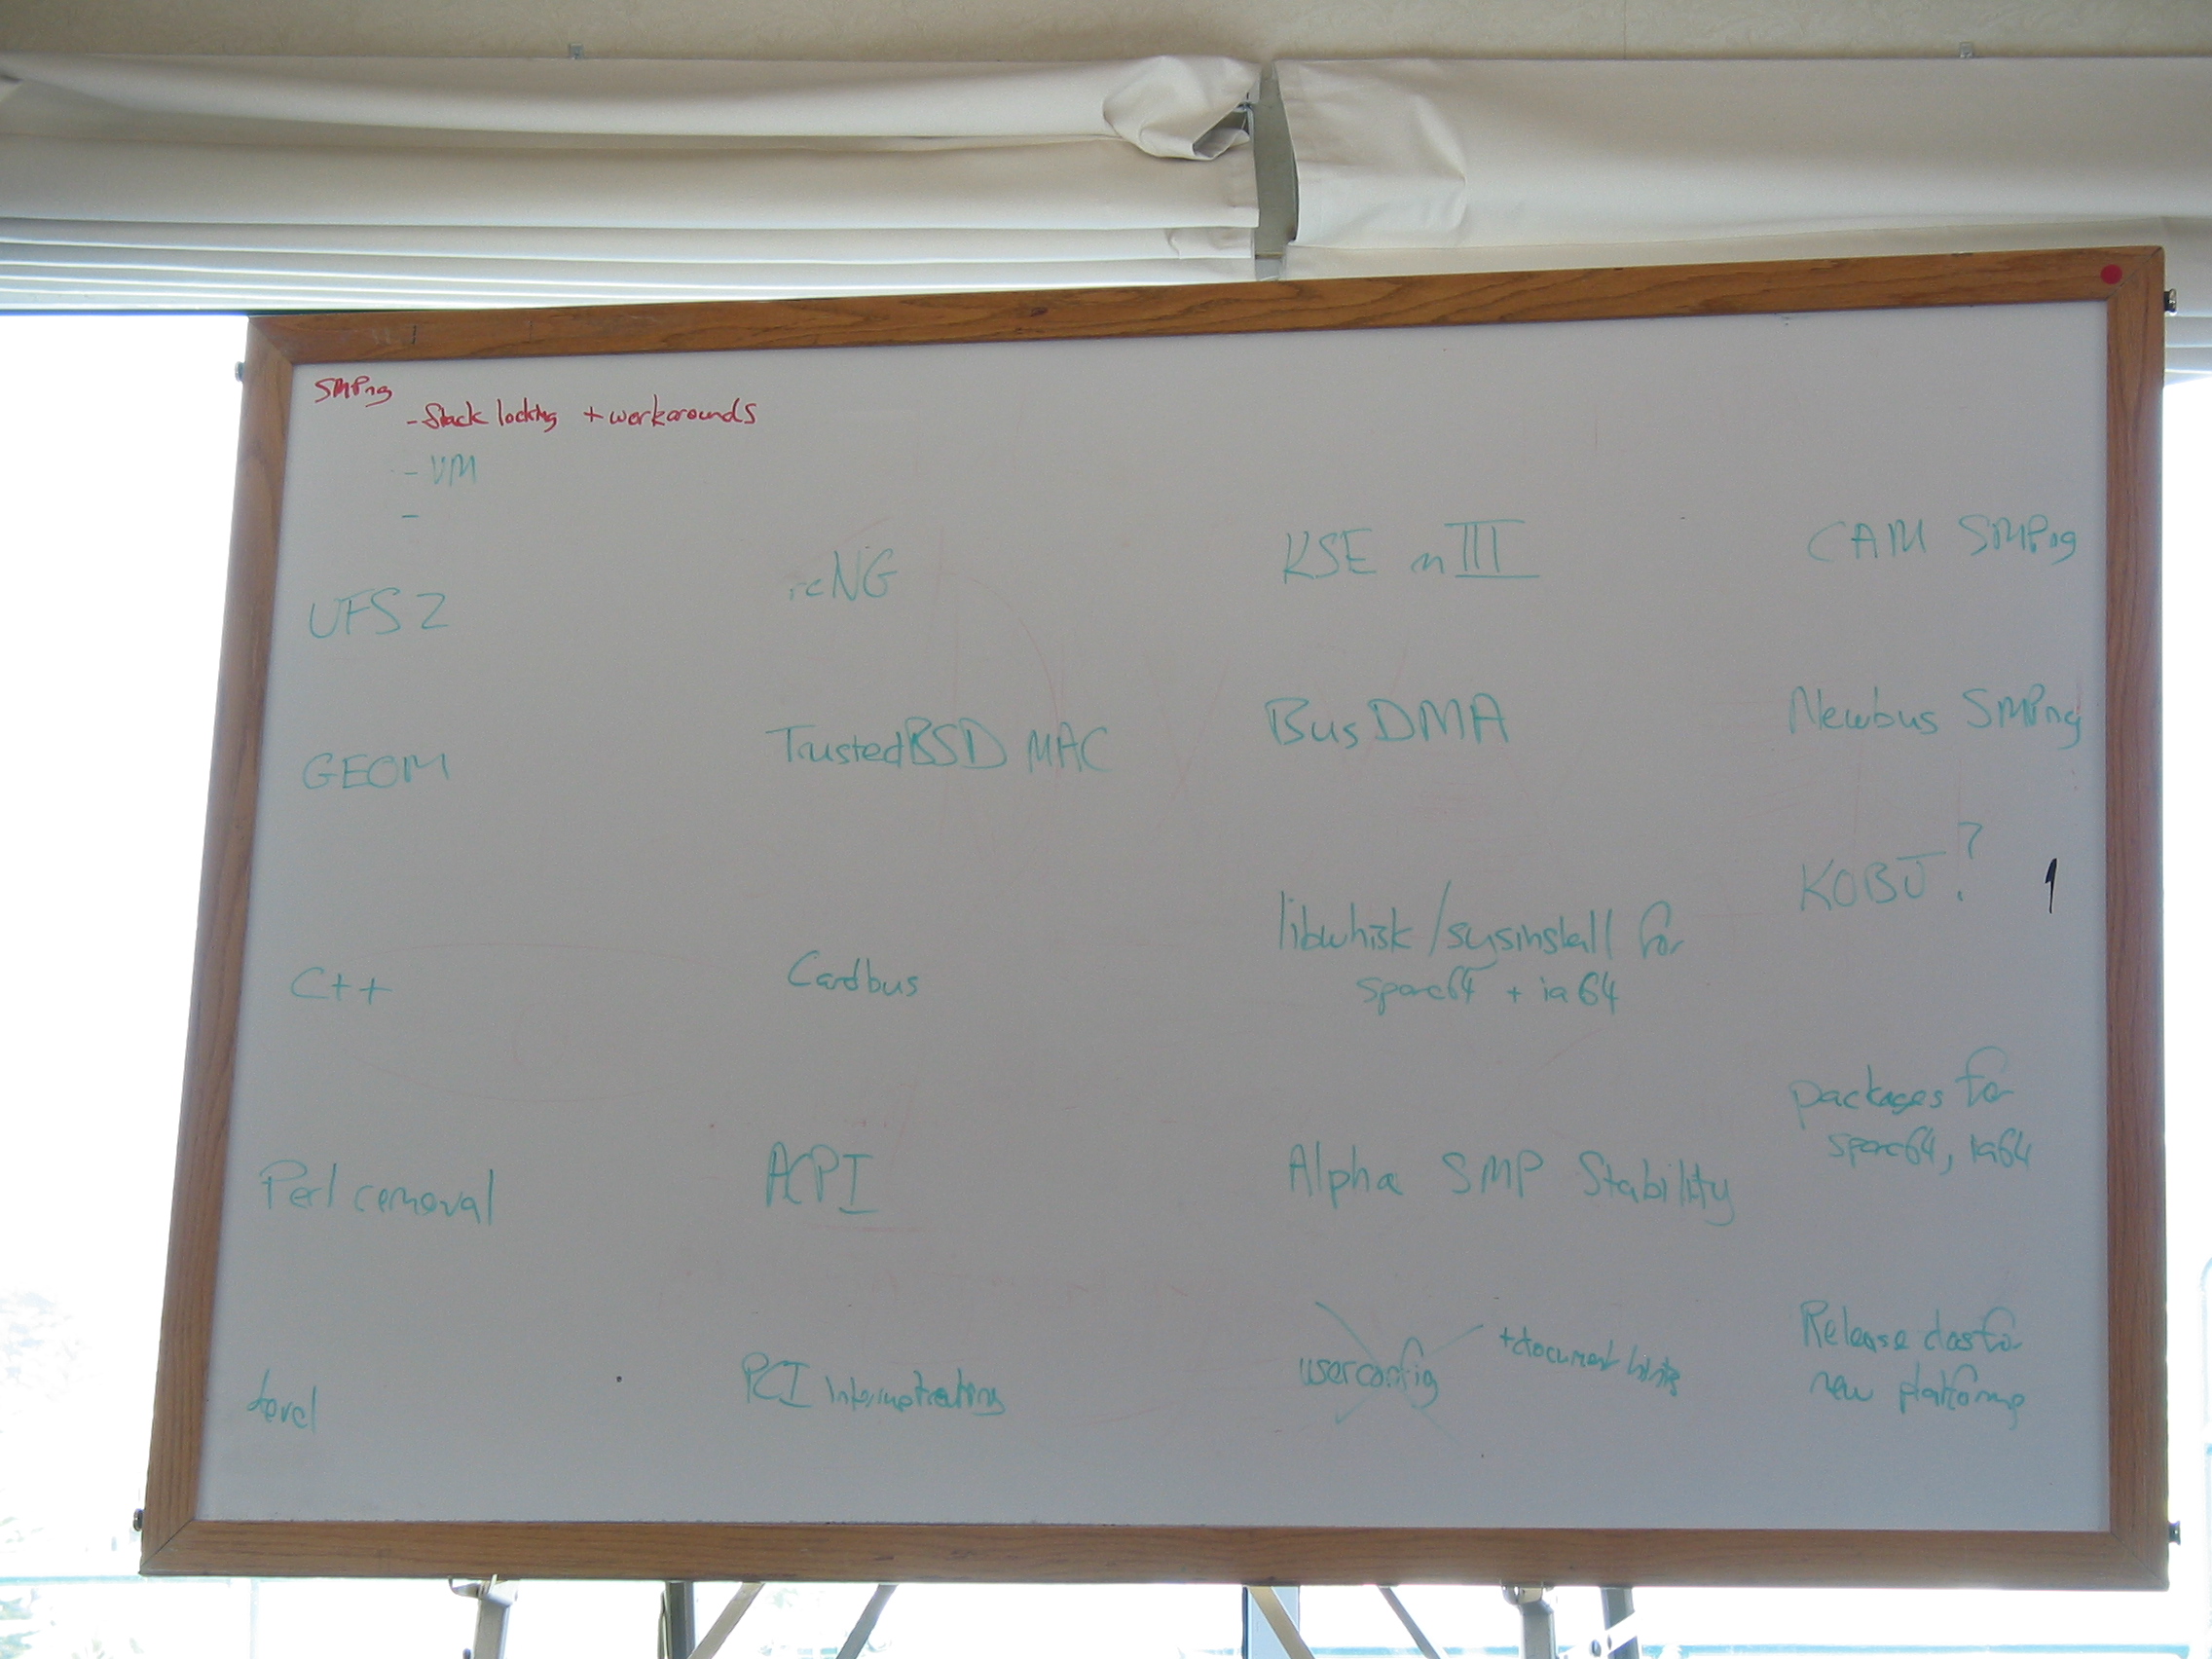 SMPng
- Stack locking + workarounds
- VM
-
UFS 2
GEOM
C++
Perl removal
devd
rcNG
TrustedBSD MAC
Cardbus
ACPI
PCI Interrupt routing
KSE m III
BusDMA
libwhisk/sysinstall for
sparc64 + ia64
Alpha SMP Stability
userconfig + document hints
CAM SMPng
Newbus SMPng
KOBJ?
packages for
sparc64, ia64
Release docs for
new platforms